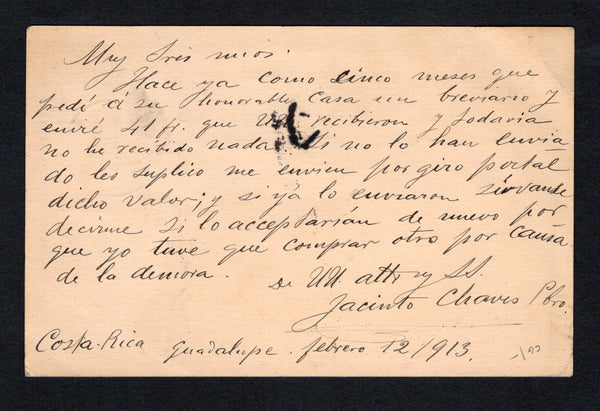 Muy Sres mios:
Hace ya como cinco meses que
pedí á su honorable casa un breviario y
envié 41 fr. que UU. recibieron y todavia
no he recibido nada. Si no lo han envia
do les suplico me envien por giro postal
dicho valor; y si ya lo enviaron sirvanse
decirme si lo aceptarian de nuevo por
que yo tuve que comprar otro por causa
de la demora.
De UU. atto y SS.
Jacinto Chaves Pbro.
Costa-Rica Guadalupe. febrero 12/913.